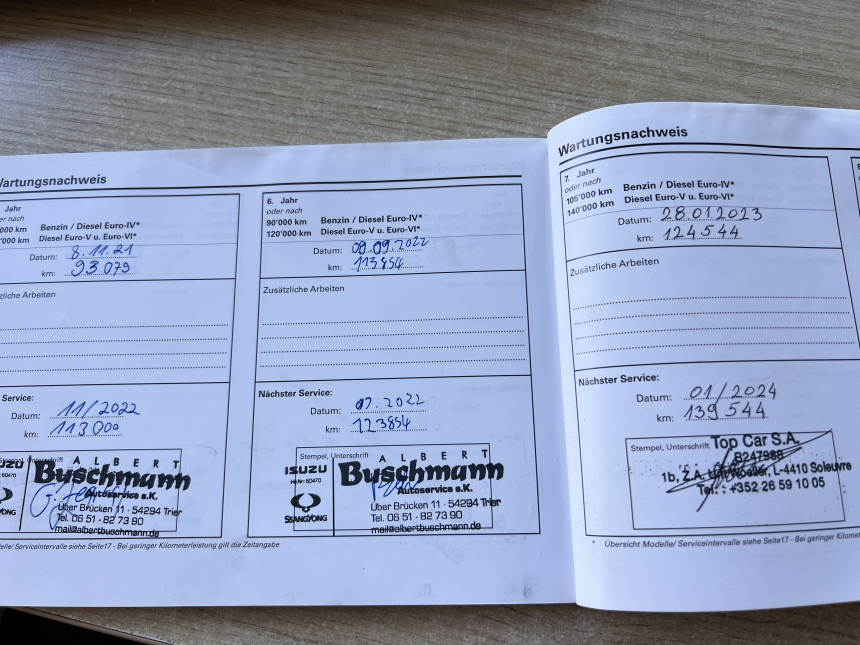 Wartungsnachweis
Jahr
oder nach
000 km Benzin / Diesel Euro-IV*
000 km Diesel Euro-V u. Euro-VI*
Datum: 8.11.21
km: 93 079
zliche Arbeiten
Service:
Datum: 11/2022
km: 113 000
Stempel, Unterschrift
UZU
60470
ALBERT
Buschmann
Autoservice e.K.
Über Brücken 11 · 54294 Trier
Tel. 06 51 - 82 73 90
mail@albertbuschmann.de
6. Jahr
oder nach
90'000 km Benzin / Diesel Euro-IV*
120'000 km Diesel Euro-V u. Euro-VI*
Datum: 09.09.2022
km: 113854
Zusätzliche Arbeiten
Nächster Service:
Datum: 07.2022
km: 123854
Stempel, Unterschrift
ISUZU
Hs.Nr.: 60470
SSANGYONG
ALBERT
Buschmann
Autoservice e.K.
Über Brücken 11 · 54294 Trier
Tel. 06 51 - 82 73 90
mail@albertbuschmann.de
elle/ Serviceintervalle siehe Seite17 - Bei geringer Kilometerleistung gilt die Zeitangabe
Wartungsnachweis
7. Jahr
oder nach
105'000 km Benzin / Diesel Euro-IV*
140'000 km Diesel Euro-V u. Euro-VI*
Datum: 28.01.2023
km: 124544
Zusätzliche Arbeiten
Nächster Service:
Datum: 01/2024
km: 139 544
Stempel, Unterschrift
Top Car S.A.
B247988
1b, Z.A. L-4410 Soleuvre
Tel.: +352 26 59 10 05
* Übersicht Modelle/ Serviceintervalle siehe Seite17 - Bei geringer Kilomet